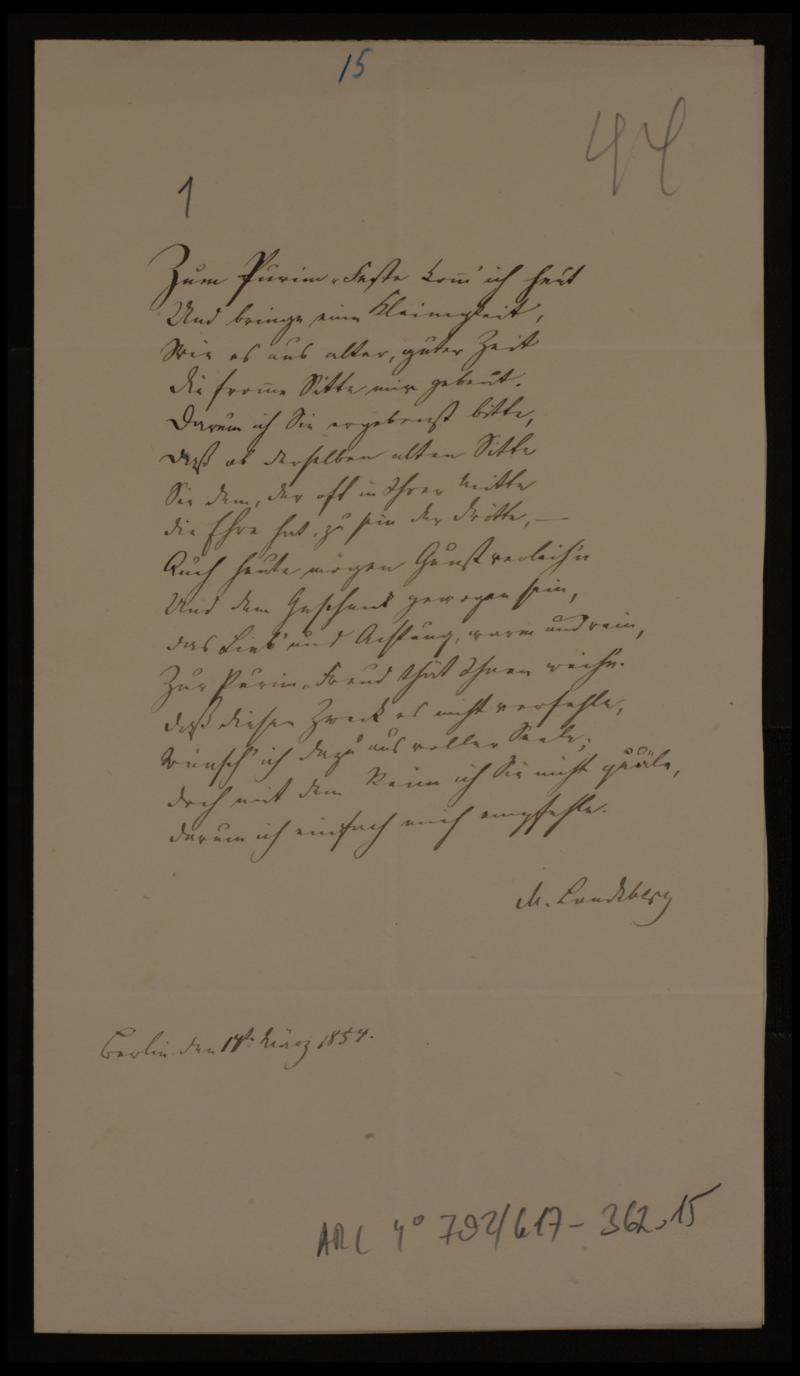 15
44
1
Zum Purim-Feste kom̄' ich heut
Und bringe eine Kleinigkeit,
Wie es aus alter, guter Zeit
die from̄e Sitte mir gebeut.
Darum ich Sie ergebenst bitte,
daß ob derselben alten Sitte
Sie dem, der oft in Ihrer Mitte
die Ehre hat, zu sein der Dritte, —
Auch heute mögen Gunst verleih'n
Und dem Geschenk gewogen sein,
das Lieb' und Achtung, warm und rein,
Zur Purim-Freud that Ihnen weih'n.
daß diesen Zweck es nicht verfehle,
Wünsch' ich dazu aus voller Seele;
doch mit dem Reim ich Sie nicht quäle,
darum ich einfach mich empfehle.
M. Landsberg
Berlin den 14t. März 1854.
ARC 4° 792/617-362.15